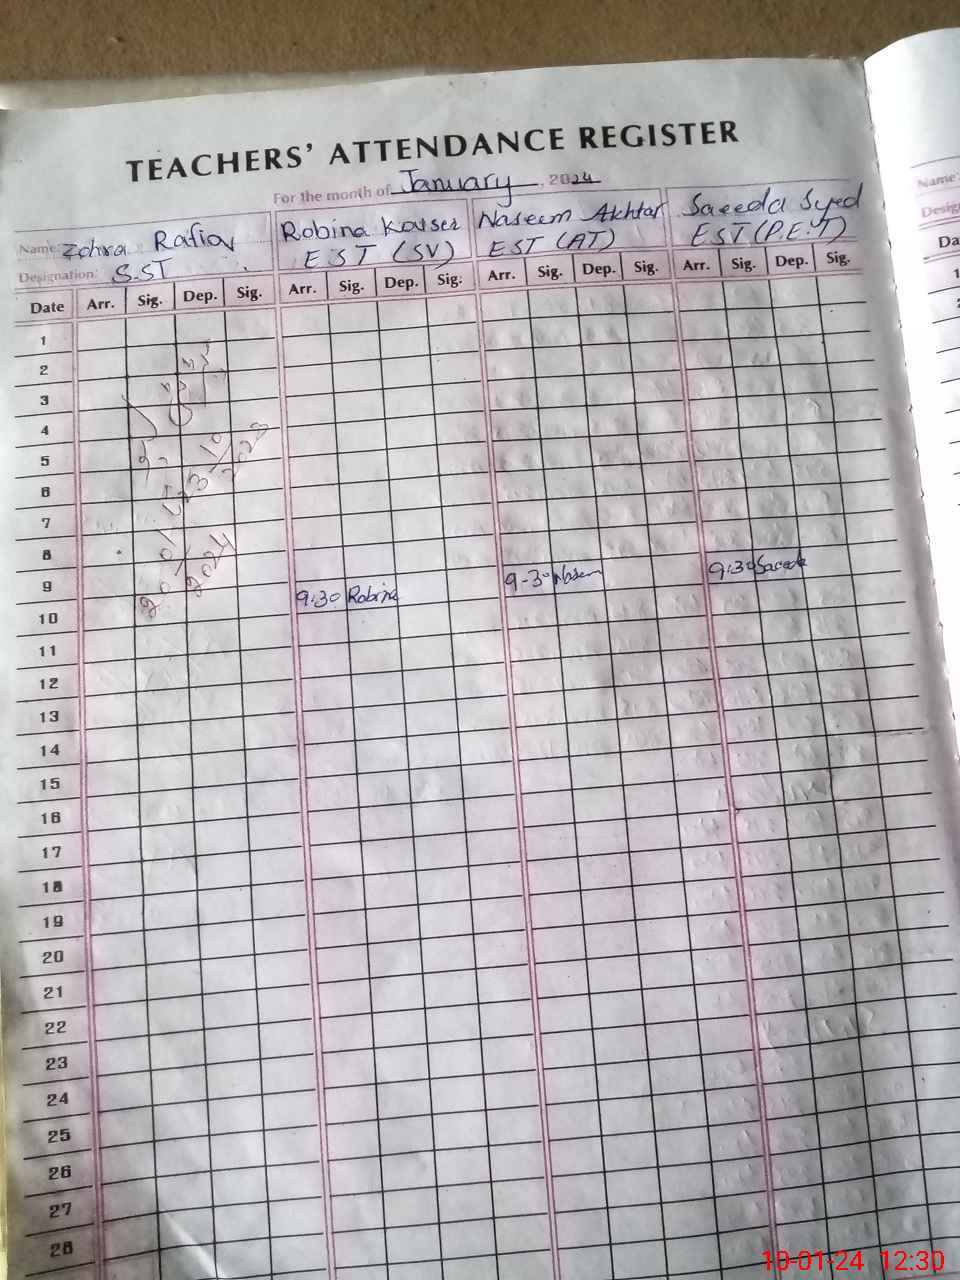 TEACHERS' ATTENDANCE REGISTER
For the month of January, 2024
Name: Zohra Rafiq
Designation: S.ST
Robina Kauser
EST (SV)
Naseem Akhtar
EST (AT)
Saeeda Syed
EST (P.E.T)
Name:
Date Arr. Sig. Dep. Sig. Arr. Sig. Dep. Sig. Arr. Sig. Dep. Sig. Arr. Sig. Dep. Sig.
1
2
3
4
5
6
7
8
9 9:30 Robina 9-30 9:30 Saeeda
10
11
12
13
14
15
16
17
18
19
20
21
22
23
24
25
26
27
28
2023
2024
10-01-24 12:30